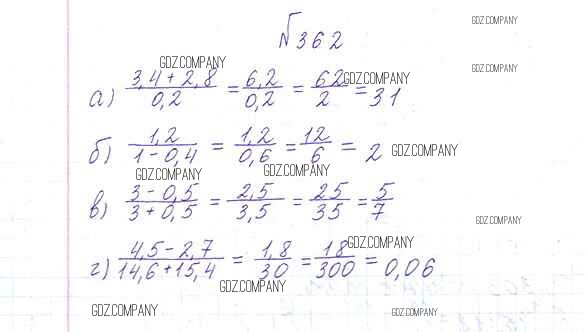 №362
GDZ.COMPANY
GDZ.COMPANY
GDZ.COMPANY
а) (3,4 + 2,8)/0,2 = 6,2/0,2 = 62/2 = 31
GDZ.COMPANY
б) 1,2/(1 - 0,4) = 1,2/0,6 = 12/6 = 2
GDZ.COMPANY
GDZ.COMPANY
GDZ.COMPANY
в) (3 - 0,5)/(3 + 0,5) = 2,5/3,5 = 25/35 = 5/7
GDZ.COMPANY
г) (4,5 - 2,7)/(14,6 + 15,4) = 1,8/30 = 18/300 = 0,06
GDZ.COMPANY
GDZ.COMPANY
GDZ.COMPANY
GDZ.COMPANY